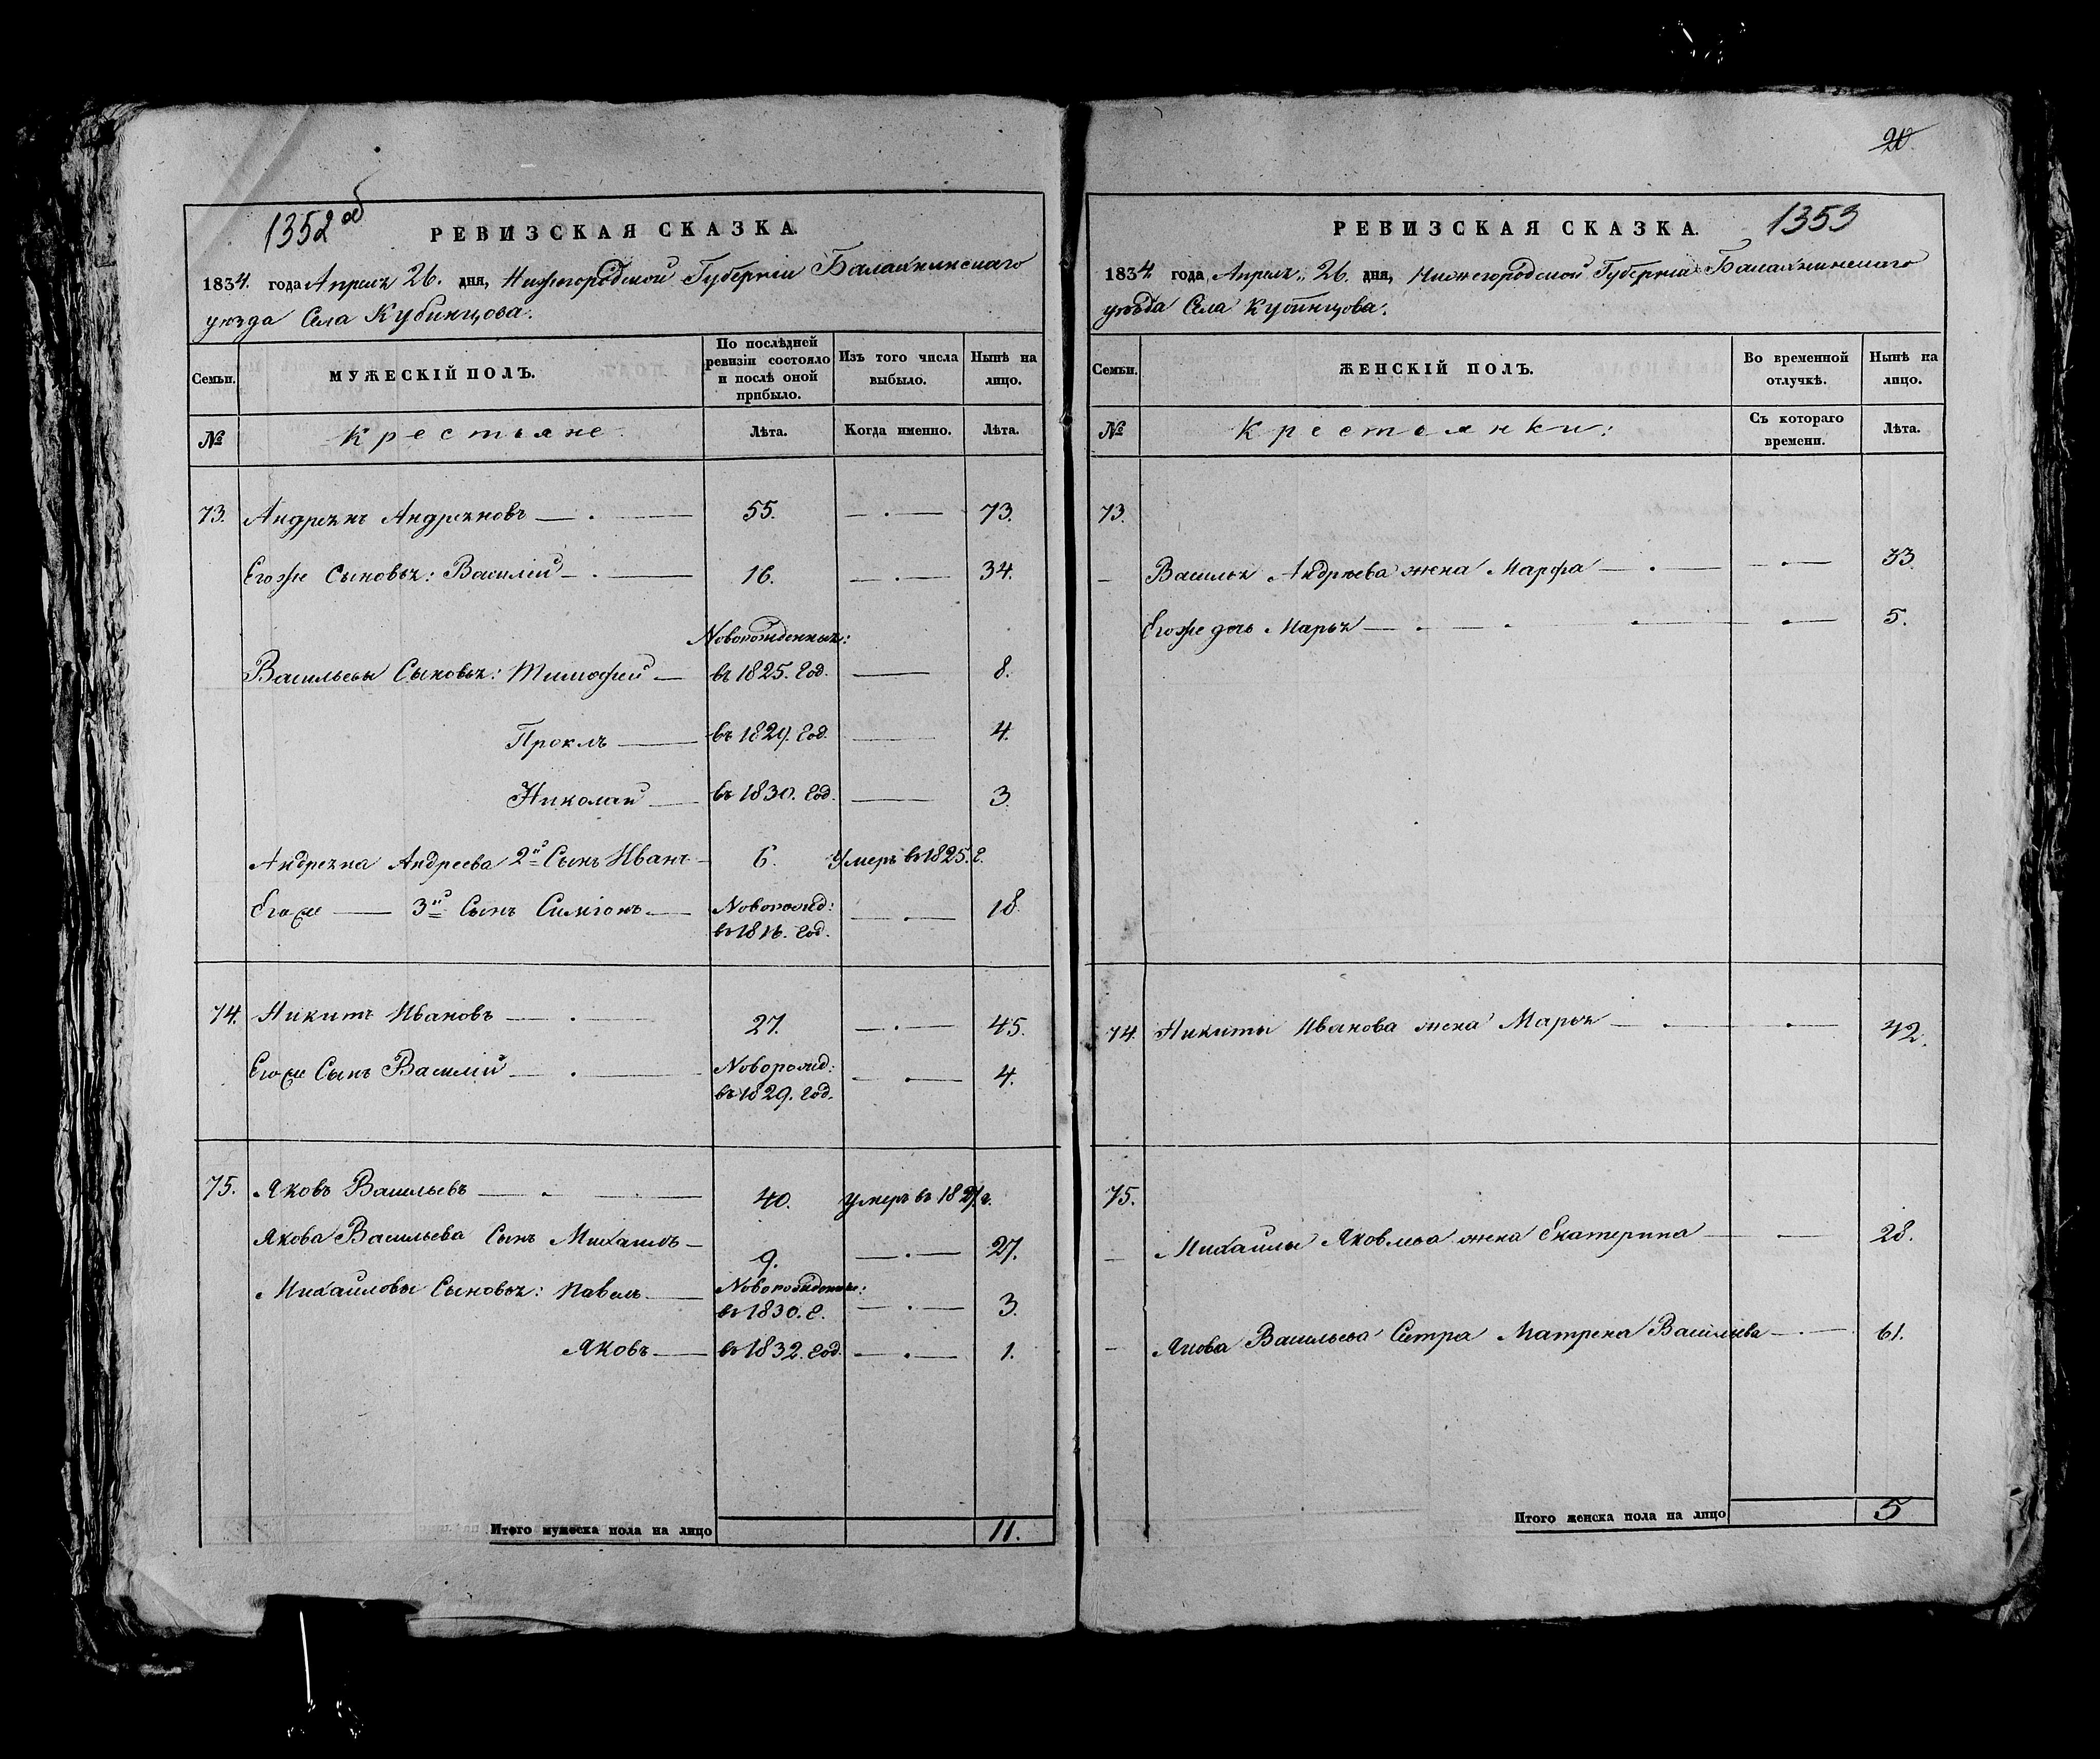 1352 об
РЕВИЗСКАЯ СКАЗКА.
1834. года Апреля 26. дня, Нижегородской Губернiи Балахнинскаго
уезда Села Кубинцова.
Семьи.
МУЖЕСКІЙ ПОЛЪ.
По послѣдней ревизіи состояло и послѣ оной прибыло.
Изъ того числа выбыло.
Нынѣ на лицо.
№
Крестьяне
Лѣта.
Когда именно.
Лѣта.
73. Андреянъ Андреяновъ 55. 73.
Егоже Сыновья: Василій 16. 34.
Новорожденныя:
Васильевы Сыновья: Тимофей въ 1825. Год. 8.
Проклъ въ 1829. Год. 4.
Николай въ 1830. Год. 3.
Андреяна Андреева 2й Сынъ Иванъ 6. Умеръ въ 1825. г.
Егоже 3й Сынъ Симіонъ Новорожд: 18
въ 1816. Год.
74. Никита Ивановъ 27. 45.
Егоже Сынъ Василій Новорожд: 4.
въ 1829. Год.
75. Яковъ Васильевъ 40. Умеръ въ г.
Якова Васильева Сынъ Михаилъ 9. 27.
Михайловы Сыновья: Павелъ Новорожденные:
въ 1830. г. 3.
Яковъ въ 1832. Год. 1.
Итого мужеска пола на лицо 11.
20.
РЕВИЗСКАЯ СКАЗКА. 1353
1834 года, Апреля 26. дня, Нижегородской Губернiи Балахнинскаго
уѣзда Села Кубинцова.
Семьи.
ЖЕНСКІЙ ПОЛЪ.
Во временной отлучкѣ.
Нынѣ на лицо.
№
Крестьянки:
Съ котораго времени.
Лѣта.
73.
Василья Андрѣева жена Марфа 33.
Егоже дочь Марья 5.
74. Никиты Иванова жена Марья 42.
75.
Михайлы Яковлева жена Екатерина 28.
Якова Васильева Сестра Матрена Васильева 61.
Итого женска пола на лицо 5